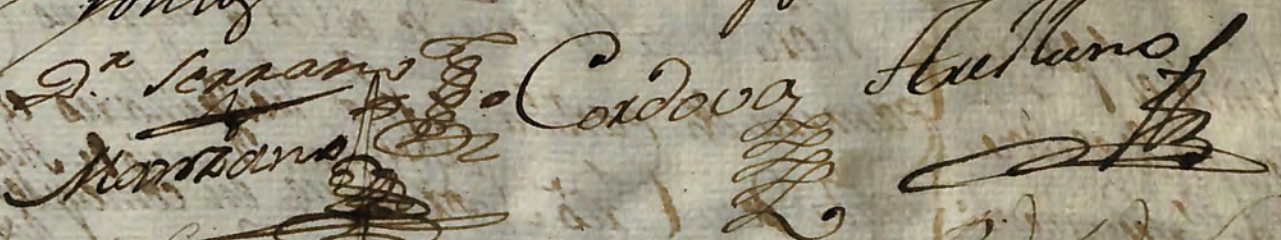 D.ʳ Serrano Cordova Arellano
Manzano